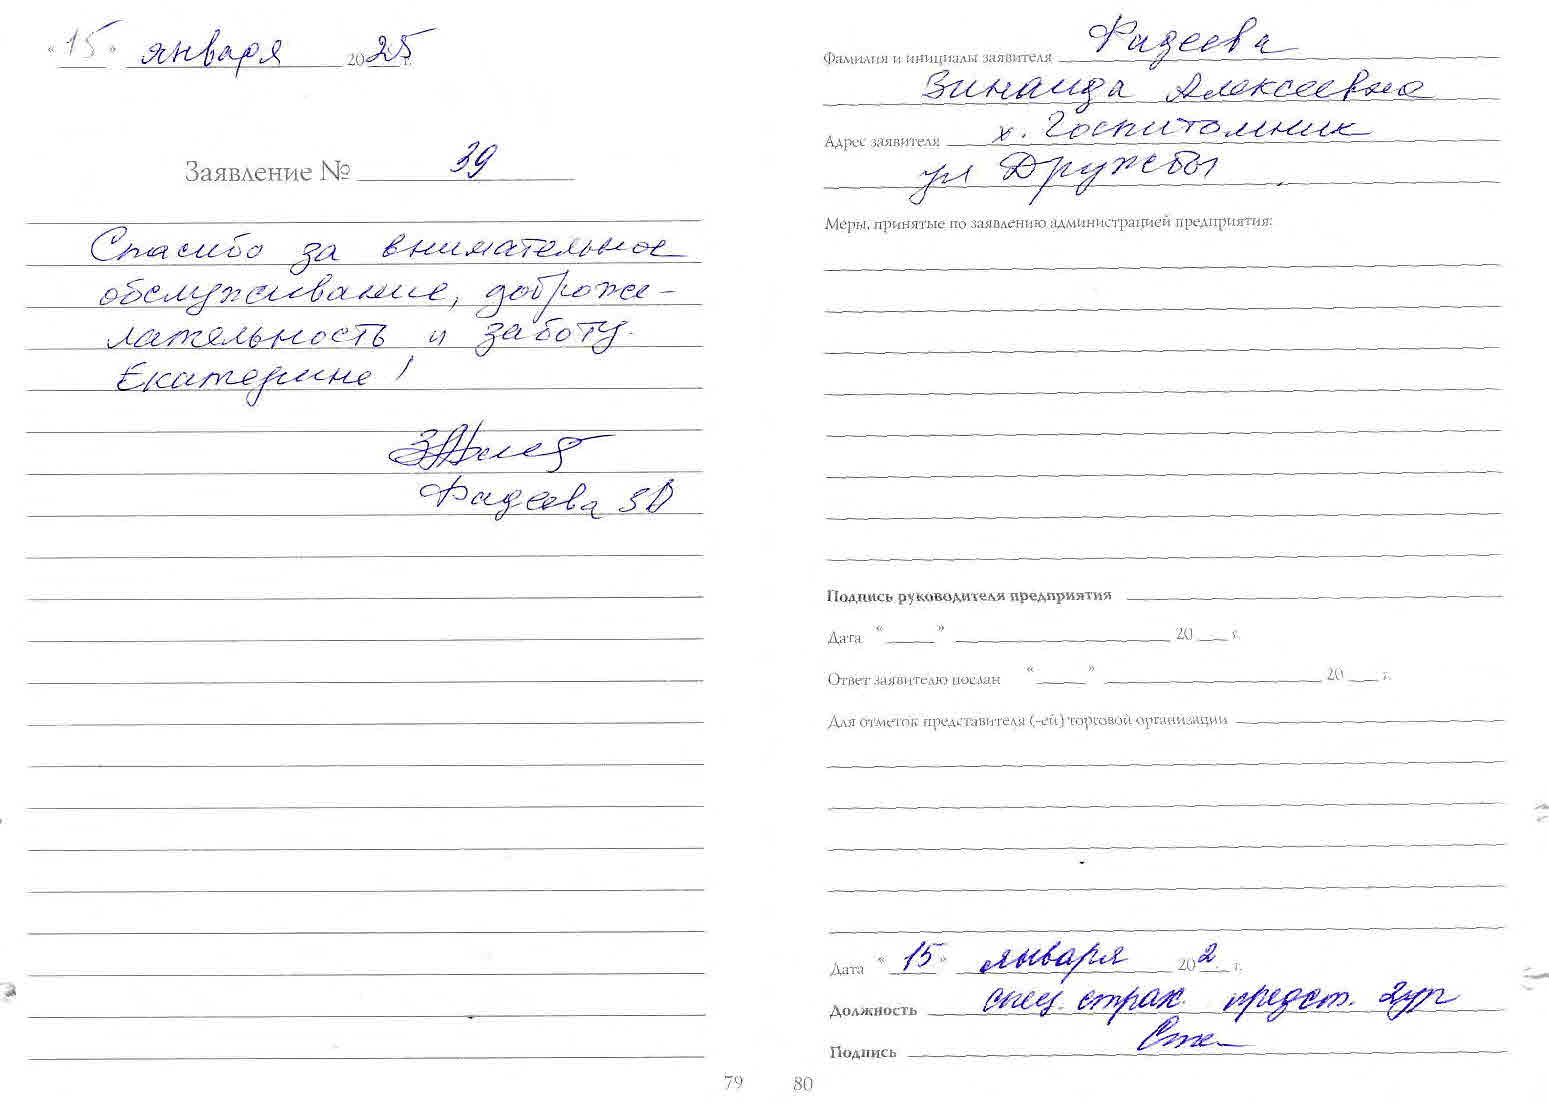 « 15 » января 2025 г.
Заявление № 39
Спасибо за внимательное
обслуживание, доброже-
лательность и заботу.
Екатерине!
Фадеева ЗА
79
Фамилия и инициалы заявителя Фадеева
Зинаида Алексеевна
Адрес заявителя х. Госпитомник
ул Дружбы
Меры, принятые по заявлению администрацией предприятия:
Подпись руководителя предприятия
Дата “ ” 20 г.
Ответ заявителю послан “ ” 20 г.
Для отметок представителя (-ей) торговой организации
Дата “ 15 ” января 202 г.
Должность спец. страх. предст.
Подпись
80